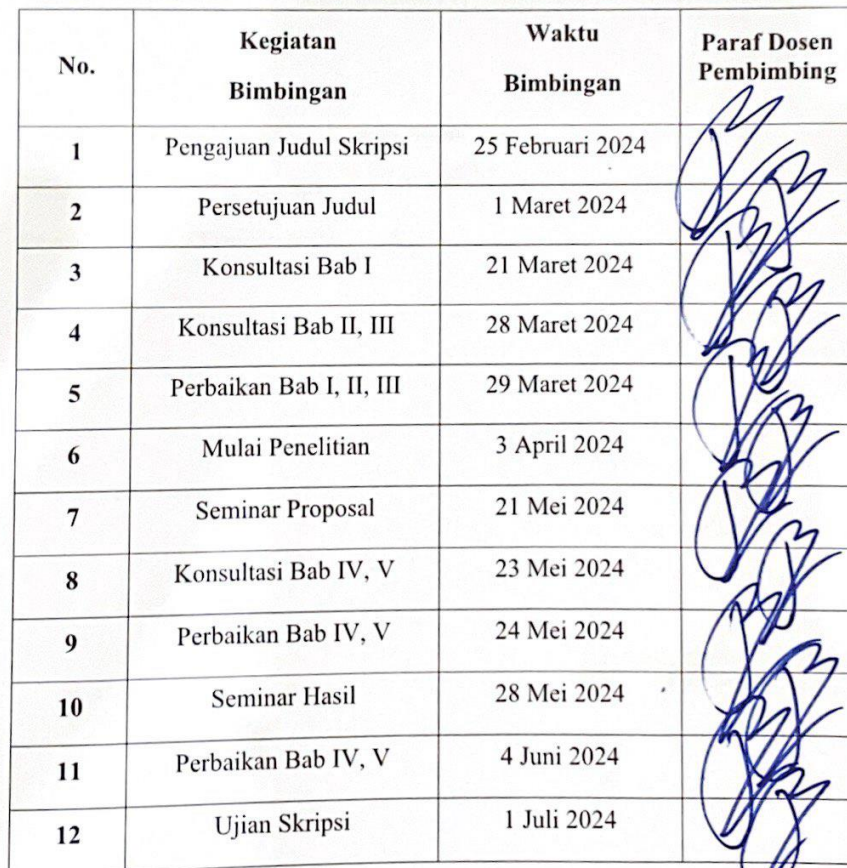 No. Kegiatan Bimbingan Waktu Bimbingan Paraf Dosen Pembimbing
1 Pengajuan Judul Skripsi 25 Februari 2024
2 Persetujuan Judul 1 Maret 2024
3 Konsultasi Bab I 21 Maret 2024
4 Konsultasi Bab II, III 28 Maret 2024
5 Perbaikan Bab I, II, III 29 Maret 2024
6 Mulai Penelitian 3 April 2024
7 Seminar Proposal 21 Mei 2024
8 Konsultasi Bab IV, V 23 Mei 2024
9 Perbaikan Bab IV, V 24 Mei 2024
10 Seminar Hasil 28 Mei 2024
11 Perbaikan Bab IV, V 4 Juni 2024
12 Ujian Skripsi 1 Juli 2024